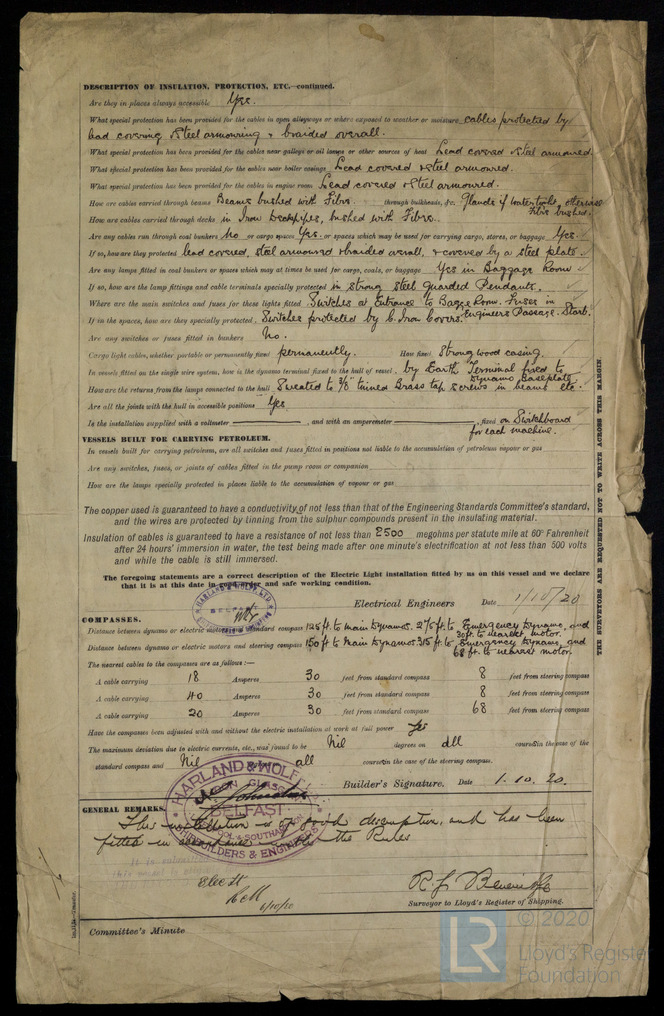 DESCRIPTION OF INSULATION, PROTECTION, ETC.—continued.
Are they in places always accessible Yes.
What special protection has been provided for the cables in open alleyways or where exposed to weather or moisture cables protected by
lead covering & steel armouring & braided overall.
What special protection has been provided for the cables near galleys or oil lamps or other sources of heat Lead covered & steel armoured.
What special protection has been provided for the cables near boiler casings Lead covered & steel armoured.
What special protection has been provided for the cables in engine room Lead covered & steel armoured.
How are cables carried through beams Beams bushed with Fibre. through bulkheads, &c. Glands if watertight, otherwise
Fibre bushed.
How are cables carried through decks in Iron Deckpipes, bushed with Fibre.
Are any cables run through coal bunkers No or cargo spaces Yes. or spaces which may be used for carrying cargo, stores, or baggage Yes.
If so, how are they protected lead covered, steel armoured & braided overall, & covered by a steel plate.
Are any lamps fitted in coal bunkers or spaces which may at times be used for cargo, coals, or baggage Yes in Baggage Room
If so, how are the lamp fittings and cable terminals specially protected in strong steel Guarded Pendants.
Where are the main switches and fuses for these lights fitted Switches at Entrance to Bagge Room. Fuses in
Engineers Passage. Starb.
If in the spaces, how are they specially protected. Switches protected by C. Iron Covers.
Are any switches or fuses fitted in bunkers No.
Cargo light cables, whether portable or permanently fixed permanently. How fixed Strong wood casing.
In vessels fitted on the single wire system, how is the dynamo terminal fixed to the hull of vessel. by Earth Terminal fixed to
Dynamo Baseplate.
How are the returns from the lamps connected to the hull Sweated to 3/8" tinned Brass tap screws in beams etc.
Are all the joints with the hull in accessible positions Yes.
Is the installation supplied with a voltmeter , and with an amperemeter , fixed on Switchboard
for each machine.
VESSELS BUILT FOR CARRYING PETROLEUM.
In vessels built for carrying petroleum, are all switches and fuses fitted in positions not liable to the accumulation of petroleum vapour or gas
Are any switches, fuses, or joints of cables fitted in the pump room or companion
How are the lamps specially protected in places liable to the accumulation of vapour or gas
The copper used is guaranteed to have a conductivity of not less than that of the Engineering Standards Committee's standard,
and the wires are protected by tinning from the sulphur compounds present in the insulating material.
Insulation of cables is guaranteed to have a resistance of not less than 2500 megohms per statute mile at 60° Fahrenheit
after 24 hours' immersion in water, the test being made after one minute's electrification at not less than 500 volts
and while the cable is still immersed.
The foregoing statements are a correct description of the Electric Light installation fitted by us on this vessel and we declare
that it is at this date in good order and safe working condition.
HARLAND & WOLFF, LTD.
BELFAST
Electrical Engineers Date 1/10/20
COMPASSES.
Distance between dynamo or electric motors and standard compass 125 ft. to Main Dynamos. 275 ft. to Emergency Dynamo, and
30 ft. to nearest motor.
Distance between dynamo or electric motors and steering compass 150 ft. to Main Dynamos. 315 ft. to Emergency Dynamo, and
68 ft. to nearest motor.
The nearest cables to the compasses are as follows :—
A cable carrying 18 Amperes 30 feet from standard compass 8 feet from steering compass
A cable carrying 40 Amperes 30 feet from standard compass 8 feet from steering compass
A cable carrying 20 Amperes 30 feet from standard compass 68 feet from steering compass
Have the compasses been adjusted with and without the electric installation at work at full power Yes
The maximum deviation due to electric currents, etc., was found to be Nil degrees on all courses in the case of the
standard compass and Nil all courses in the case of the steering compass.
HARLAND & WOLFF
GLASGOW
BELFAST
SOUTHAMPTON
SHIPBUILDERS & ENGINEERS
Builder's Signature. Date 1. 10. 20.
GENERAL REMARKS.
This installation is of good description, and has been
fitted in accordance the Rules
Elec Lt
6/10/20
Surveyor to Lloyd's Register of Shipping.
Committee's Minute
THE SURVEYORS ARE REQUESTED NOT TO WRITE ACROSS THIS MARGIN.
LR
© 2020
Lloyd's Register
Foundation